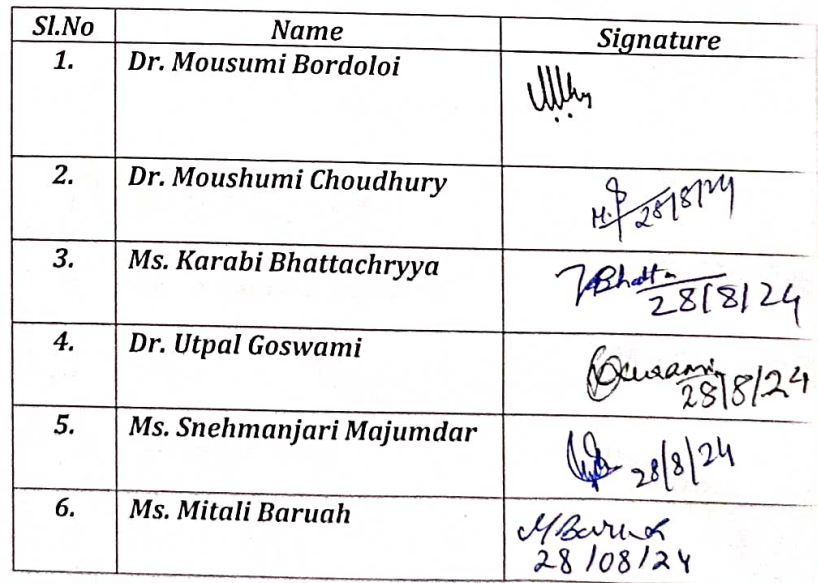 Sl.No Name Signature
1. Dr. Mousumi Bordoloi
2. Dr. Moushumi Choudhury 28/8/24
3. Ms. Karabi Bhattachryya Bhatta
28/8/24
4. Dr. Utpal Goswami Goswami
28/8/24
5. Ms. Snehmanjari Majumdar 28/8/24
6. Ms. Mitali Baruah MBaruah
28/08/24